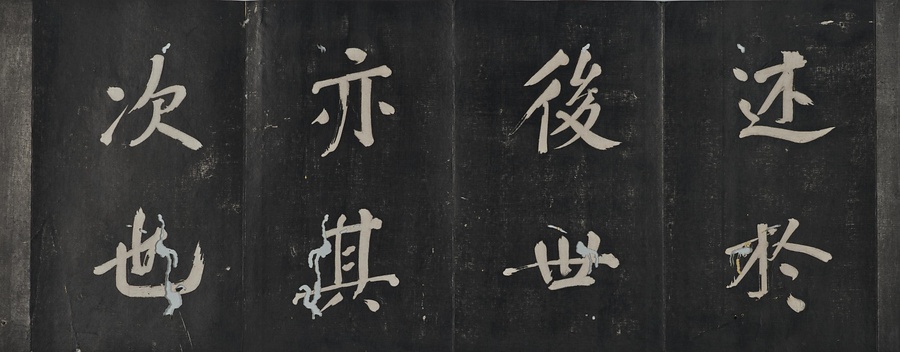 述於
後世
亦其
次也